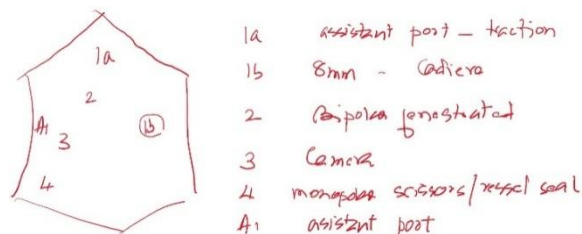 1a
2
A1
3
1b
4
1a assistant port - traction
1b 8mm - Cadiere
2 Bipolar fenestrated
3 Camera
4 monopolar scissors/vessel seal
A1 asistant port